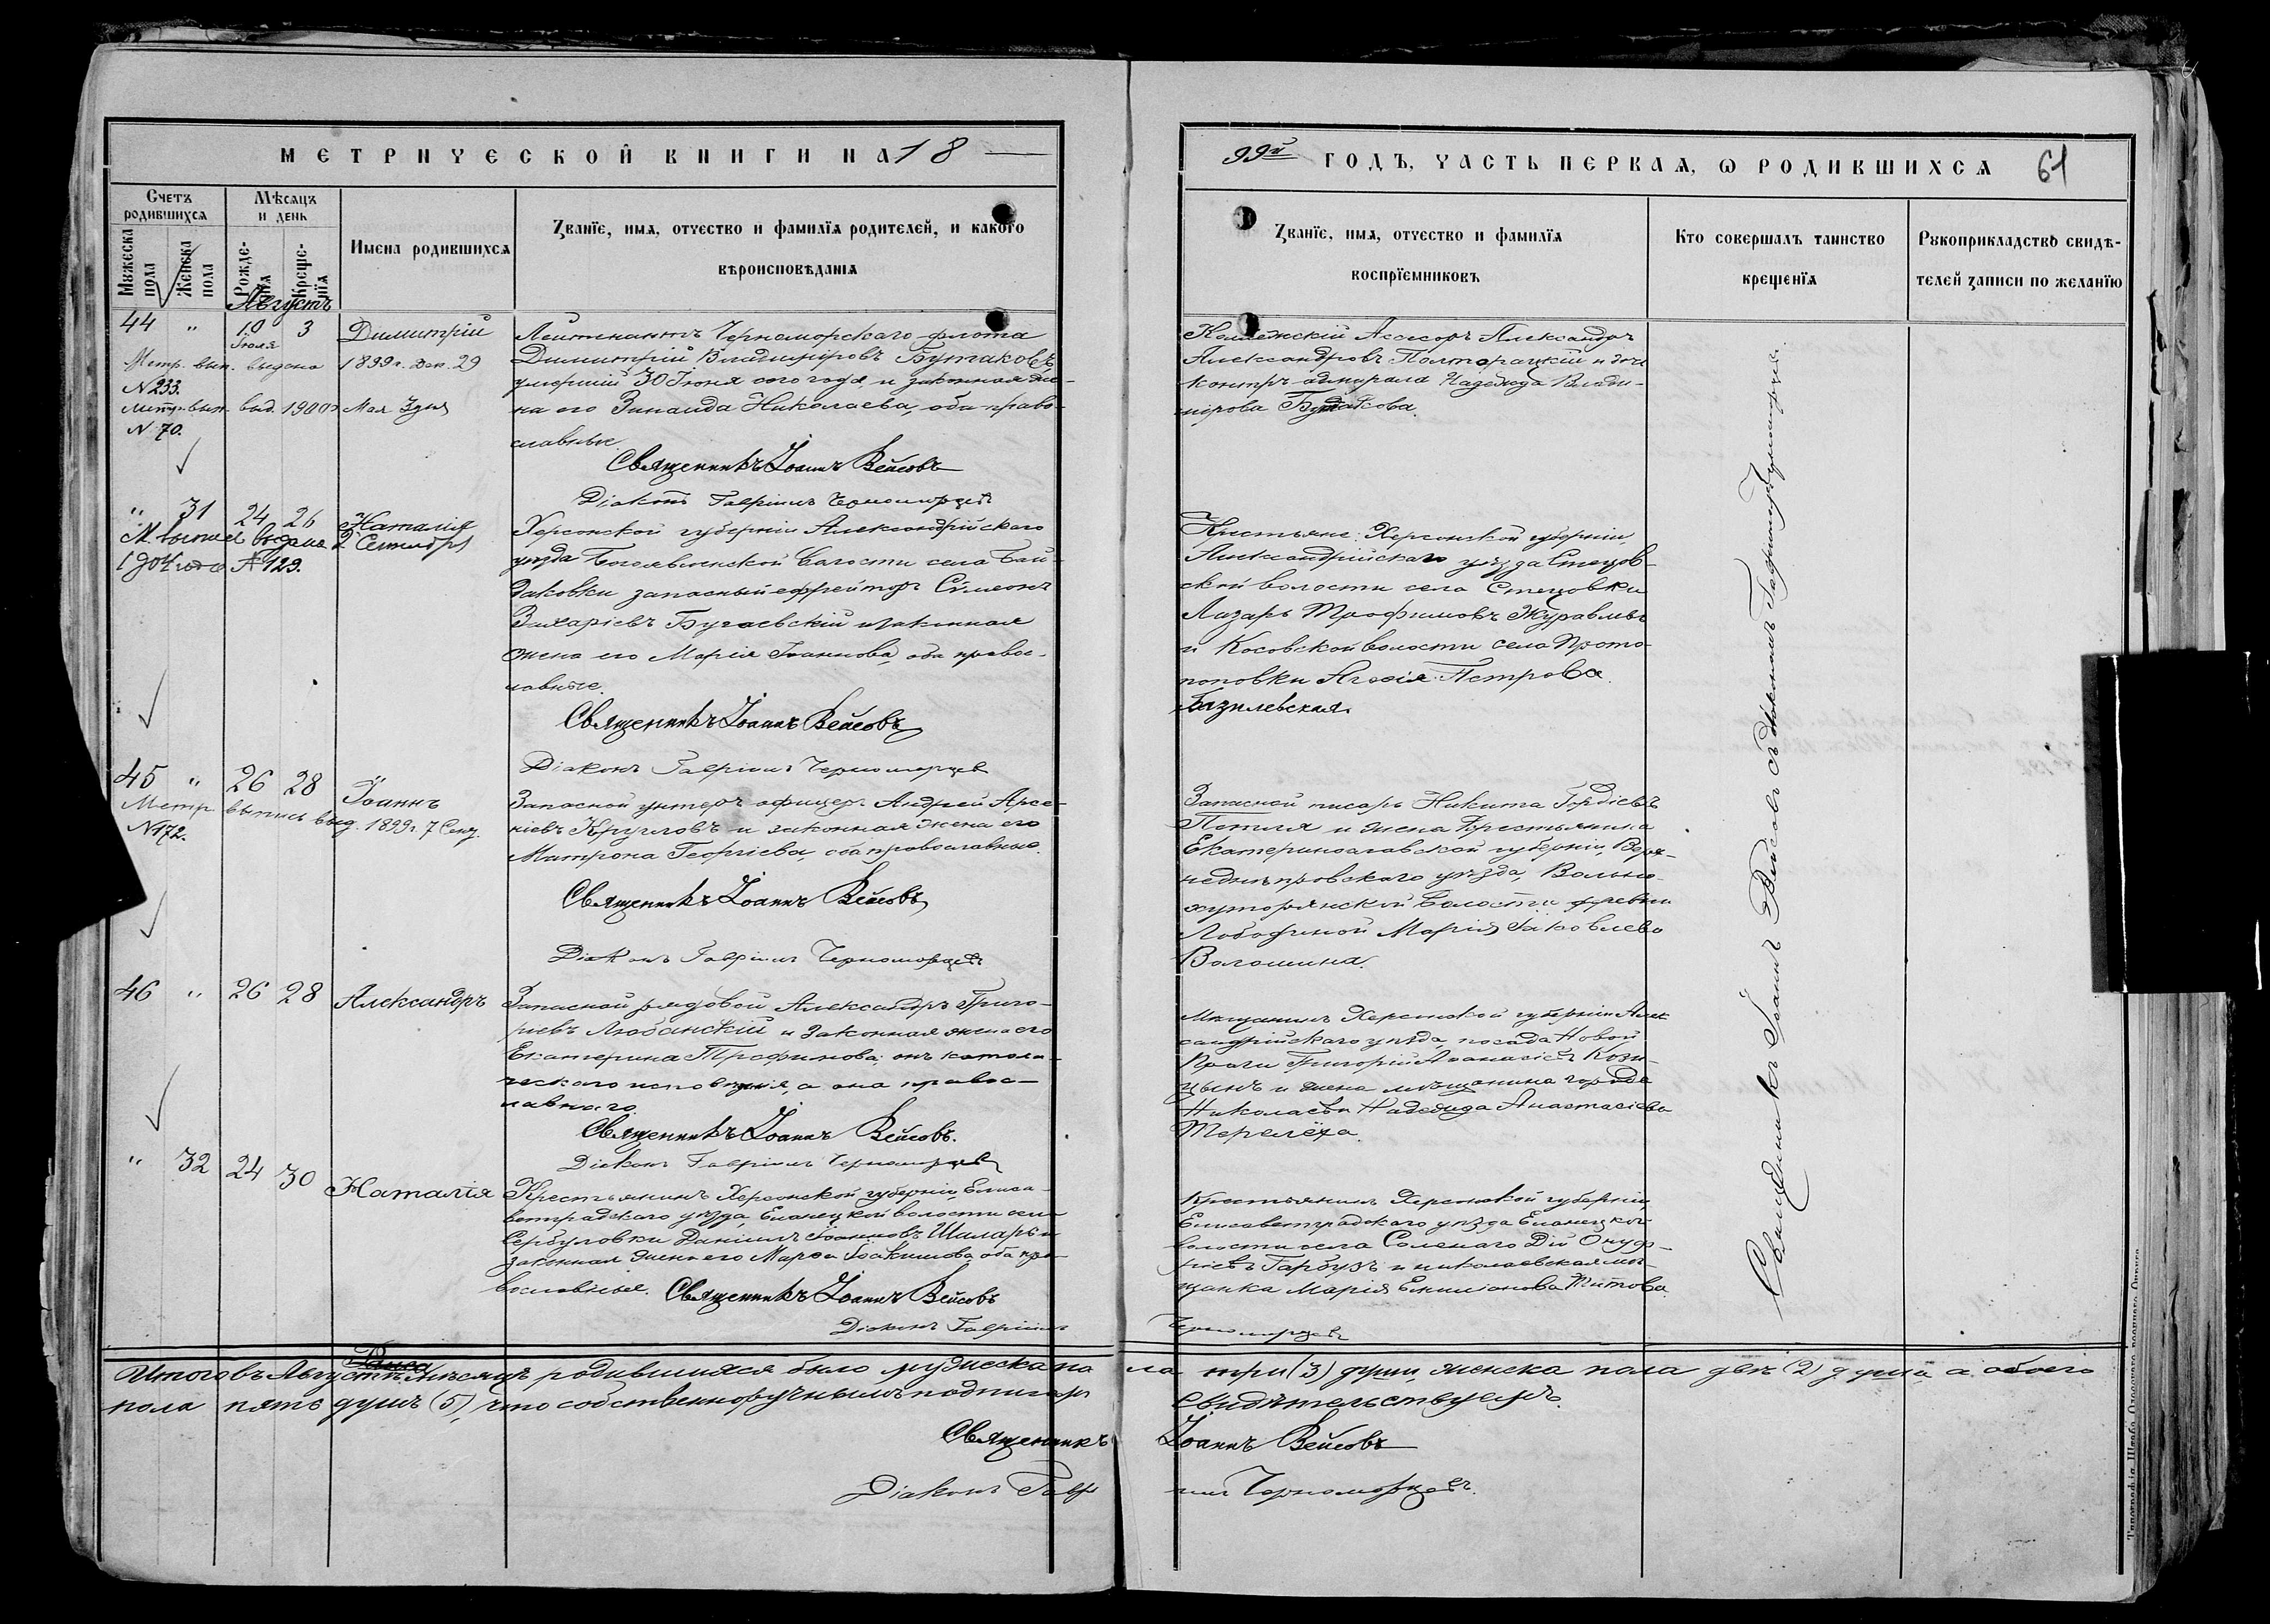 МЕТРИЧЕСКОЙ КНИГИ НА 18
99й ГОДЪ, ЧАСТЬ ПЕРВАЯ, Ѡ РОДИВШИХСЯ 61
Счетъ родившихся
Мѣсяцъ и день
Мужеска пола
Женска пола
Рожденія
Крещенія
Имена родившихся
Званїе, имя, отчество и фамилїя родителей, и какого
вѣроисповѣданія
Званїе, имя, отчество и фамилїя
воспрїемниковъ
Кто совершалъ таинство
крещенїя
Рукоприкладство свидѣ-
телей записи по желанїю
Августъ
44 " 10 Іюля 3 Димитрій
Метр. вып. выдана 1899 г. Дек. 29
N 233.
Метр. вып. выд. 1900 г. Мая 3 дня
N 70.
Лейтенантъ Черноморскаго флота
Димитрій Владиміровъ Бутаковъ,
умершій 30 Іюня сего года, и законная же-
на его Зинаида Николаева, оба право-
славные
Священникъ Іоаннъ Вейсовъ
Діаконъ Гавріилъ Черноморцевъ
Коллежскій Ассесоръ Александръ
Александровъ Полторацкій и дочь
контръ-адмирала Надежда Влади-
мірова Бутакова.
" 31 24 26 Наталія
М. выпись выдана 2 Сентября
N 129.
Херсонской губерніи Александрійскаго
уѣзда Богоявленской волости села Бай-
даковки запасный ефрейторъ Сѵмеонъ
Захаріевъ Бугаевскій и законная
жена его Марія Іоаннова, оба правос-
лавные.
Священникъ Іоаннъ Вейсовъ
Діаконъ Гавріилъ Черноморцев
Крестьяне: Херсонской губерніи,
Александрійскаго уѣзда Стецов-
ской волости села Стецовки
Лазарь Трофимовъ Журавль
и Косовской волости села Прото-
поповки Агафія Петрова
Базилевская.
45 " 26 28 Іоаннъ
Метр. выпись выд. 1899 г. 7 Сент.
N 172.
Запасной унтеръ-офицеръ Андрей Арсе-
ніевъ Кругловъ и законная жена его
Матрона Георгіева, оба православные.
Священникъ Іоаннъ Вейсовъ
Діаконъ Гавріилъ Черноморцевъ
Запасной писарь Никита Гордіевъ
и жена Крестьянина
Екатеринославской губерніи, Верх-
неднѣпровскаго уѣзда, Вольно-
хуторянской волости деревни
Марія Іаковлева
Волошина.
46 " 26 28 Александръ
Запасной рядовой Александръ Григо-
ріевъ Любанскій и законная жена его
Екатерина Трофимова; онъ католи-
ческаго исповѣданія, а она правос-
лавнаго.
Священникъ Іоаннъ Вейсовъ.
Діаконъ Гавріилъ Черноморцев
Мѣщанинъ Херсонской губерніи Алек-
сандрійскаго уѣзда, посада Новой
Праги Григорій Аѳанасіевъ Кози-
цынъ и жена мѣщанина города
Николаева Надежда Анастасіева
Терелёха.
" 32 24 30 Наталія
Крестьянинъ Херсонской губерніи, Елиса-
ветградскаго уѣзда, Еланецкой волости села
Сербуловки Даніилъ Іоанновъ Шиларь и
законная жена его Марѳа Іоакимова, оба пра-
вославные. Священникъ Іоаннъ Вейсовъ
Діаконъ Гавріилъ Черноморцевъ
Крестьянинъ Херсонской губерніи,
Елисаветградскаго уѣзда Еланецкой
волости села Соленаго Дій Онуф-
ріевъ Гарбузъ и николаевская мѣ-
щанка Марія Емиліанова Титова.
Священникъ Іоаннъ Вейсовъ съ діакономъ Гавріиломъ Черноморцевымъ.
Итого въ Августѣ мѣсяцѣ родившихся было мужеска по ла три (3) души, женска пола двѣ (2) души, а обоего
пола пять душъ (5), что собственноручнымъ подписомъ свидѣтельствуемъ.
Священникъ Іоаннъ Вейсовъ
Діаконъ Гавріилъ Черноморцевъ.